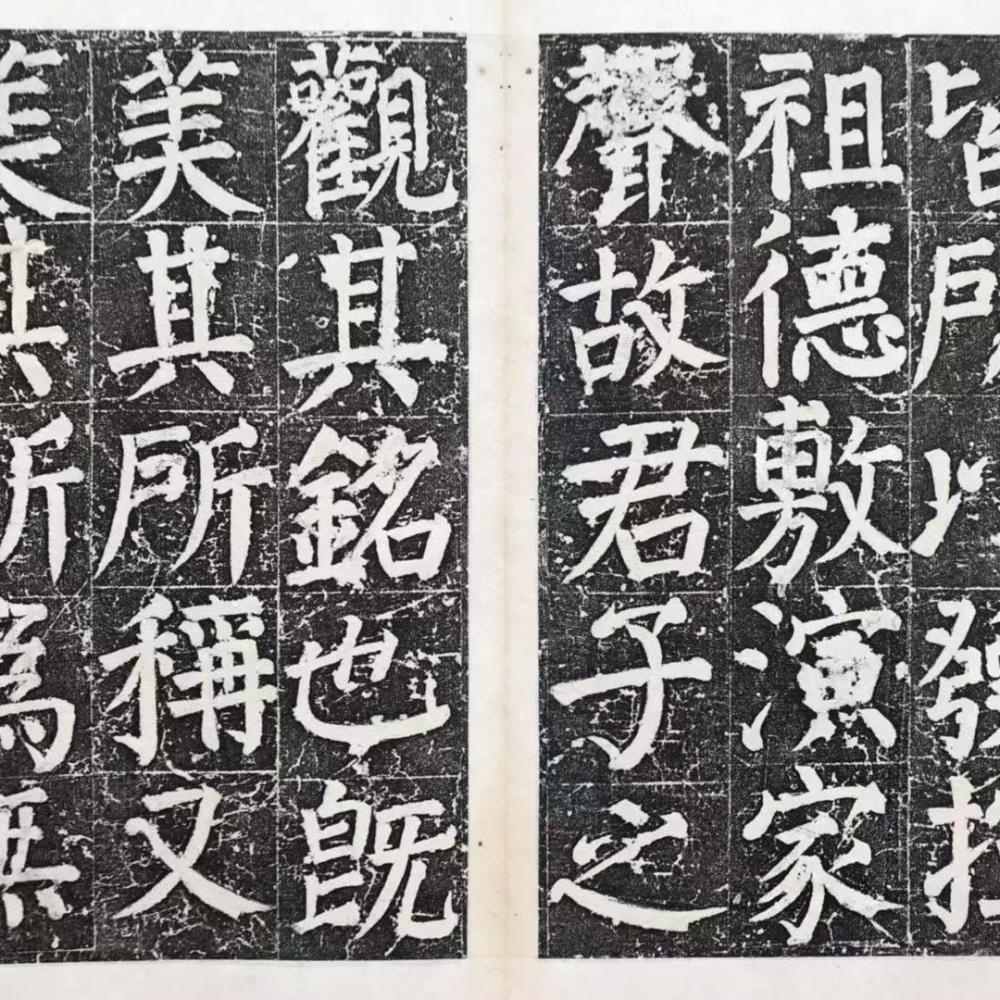 皆所以發
祖德敷演家
聲故君子之
觀其銘也既
美其所稱又
美其所為無